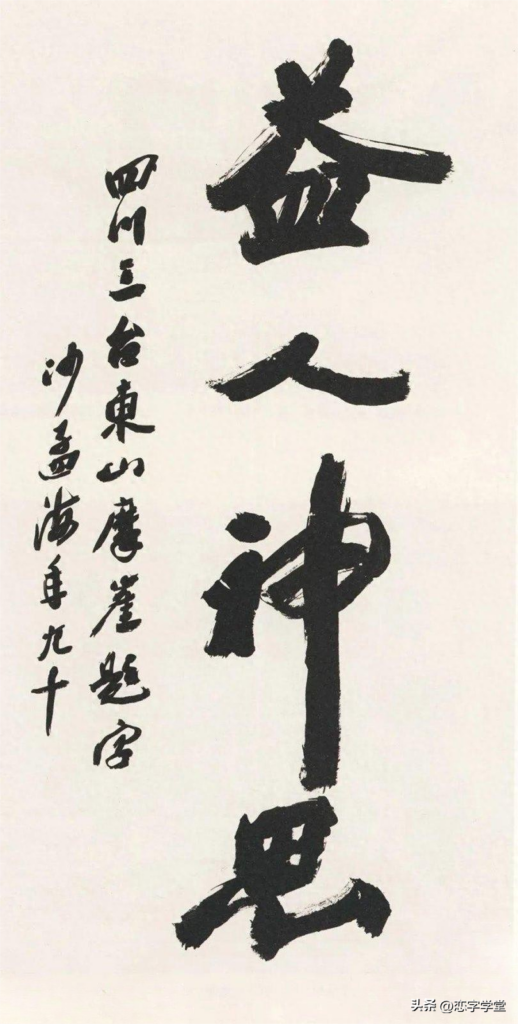 益人神思
四川三台東山摩崖題字
沙孟海年九十
头条 @恋字学堂